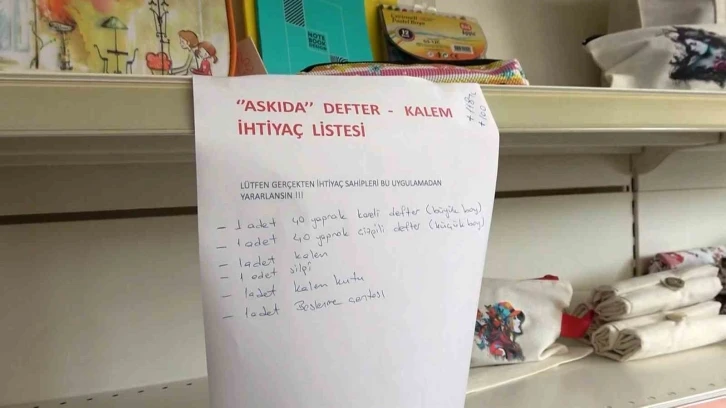 NOTE
BOOK
"ASKIDA" DEFTER - KALEM
İHTİYAÇ LİSTESİ
LÜTFEN GERÇEKTEN İHTİYAÇ SAHİPLERİ BU UYGULAMADAN
YARARLANSIN !!!
- 1 adet 40 yaprak kareli defter (büyük boy)
- 1 adet 40 yaprak çizgili defter (küçük boy)
- 1 adet kalem
- 1 adet silgi
- 1 adet kalem kutu
- 1 adet Beslenme çantası